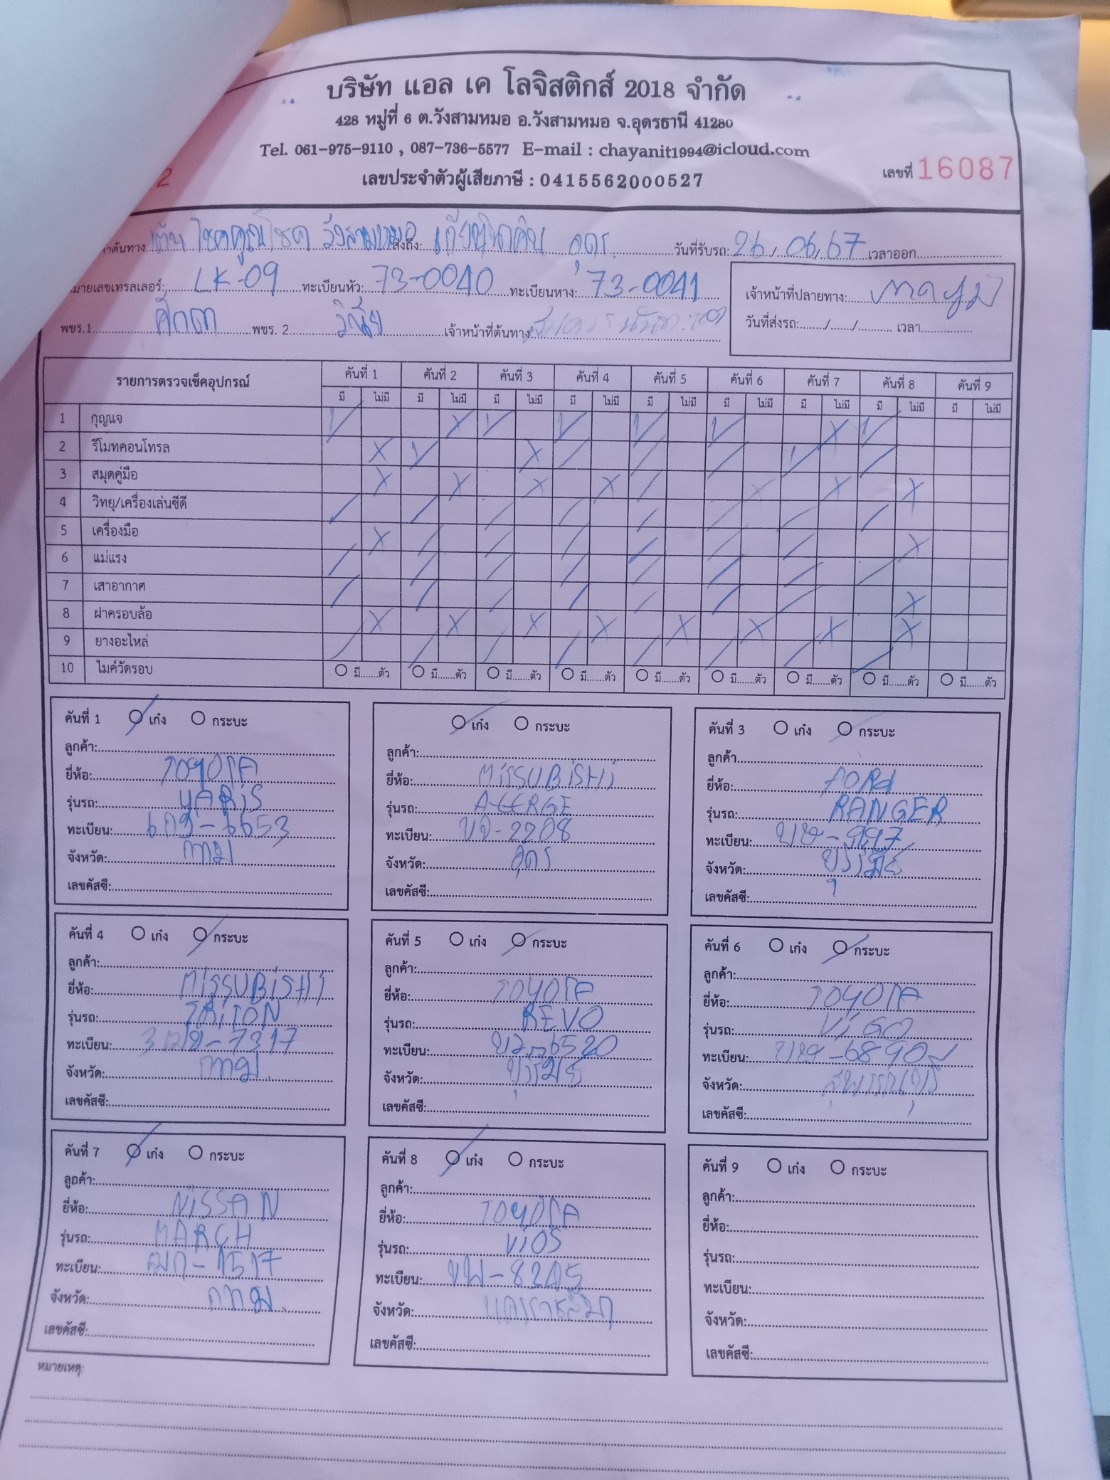 บริษัท แอล เค โลจิสติกส์ 2018 จำกัด
428 หมู่ที่ 6 ต.วังสามหมอ อ.วังสามหมอ จ.อุดรธานี 41280
Tel. 061-975-9110 , 087-736-5577 E-mail : chayanit1994@icloud.com
2 เลขที่ 16087
เลขประจำตัวผู้เสียภาษี : 0415562000527
ต้นทาง วังสามหมอ ส่งถึง: อุดร วันที่รับรถ: 26/06/67 เวลาออก
หมายเลขเทรลเลอร์: LK-09 ทะเบียนหัว: 73-0040 ทะเบียนหาง: 73-0041
เจ้าหน้าที่ปลายทาง:
พขร.1 พขร. 2 วินัย เจ้าหน้าที่ต้นทาง
วันที่ส่งรถ:....../....../.......... เวลา
รายการตรวจเช็คอุปกรณ์ คันที่ 1 คันที่ 2 คันที่ 3 คันที่ 4 คันที่ 5 คันที่ 6 คันที่ 7 คันที่ 8 คันที่ 9
มี ไม่มี มี ไม่มี มี ไม่มี มี ไม่มี มี ไม่มี มี ไม่มี มี ไม่มี มี ไม่มี มี ไม่มี
1 กุญแจ / X / / / / X /
2 รีโมทคอนโทรล X / X / / / / /
3 สมุดคู่มือ X X X X / X X X
4 วิทยุ/เครื่องเล่นซีดี / / / / / / / /
5 เครื่องมือ X / / / / / / X
6 แม่แรง / / / / / / / /
7 เสาอากาศ / / / / / / / X
8 ฝาครอบล้อ X X X X X X X X
9 ยางอะไหล่ / / / / / / / /
10 ไมค์วัดรอบ มี......ตัว มี......ตัว มี......ตัว มี......ตัว มี......ตัว มี......ตัว มี......ตัว มี......ตัว มี......ตัว
คันที่ 1 เก๋ง กระบะ
ลูกค้า:
ยี่ห้อ: TOYOTA
รุ่นรถ: YARIS
ทะเบียน: 6653
จังหวัด: กทม
เลขคัสซี:
เก๋ง กระบะ
ลูกค้า:
ยี่ห้อ: MISSUBISHI
รุ่นรถ:
ทะเบียน: 2208
จังหวัด: อุดร
เลขคัสซี:
คันที่ 3 เก๋ง กระบะ
ลูกค้า:
ยี่ห้อ: FORd
รุ่นรถ: RANGER
ทะเบียน:
จังหวัด: บุรีรัมย์
เลขคัสซี:
คันที่ 4 เก๋ง กระบะ
ลูกค้า:
ยี่ห้อ: MISSUBISHI
รุ่นรถ: TRITON
ทะเบียน: 7317
จังหวัด: กทม.
เลขคัสซี:
คันที่ 5 เก๋ง กระบะ
ลูกค้า:
ยี่ห้อ: TOYOTA
รุ่นรถ: REVO
ทะเบียน: 6520
จังหวัด: บุรีรัมย์
เลขคัสซี:
คันที่ 6 เก๋ง กระบะ
ลูกค้า:
ยี่ห้อ: TOYOTA
รุ่นรถ: ViGO
ทะเบียน: 6890
จังหวัด: สุพรรณบุรี
เลขคัสซี:
คันที่ 7 เก๋ง กระบะ
ลูกค้า:
ยี่ห้อ: NISSAN
รุ่นรถ: MARCH
ทะเบียน: ฌก-1517
จังหวัด: กทม.
เลขคัสซี:
คันที่ 8 เก๋ง กระบะ
ลูกค้า:
ยี่ห้อ: TOYOTA
รุ่นรถ: ViOS
ทะเบียน: ขพ-8245
จังหวัด: นครราชสีมา
เลขคัสซี:
คันที่ 9 เก๋ง กระบะ
ลูกค้า:
ยี่ห้อ:
รุ่นรถ:
ทะเบียน:
จังหวัด:
เลขคัสซี:
หมายเหตุ